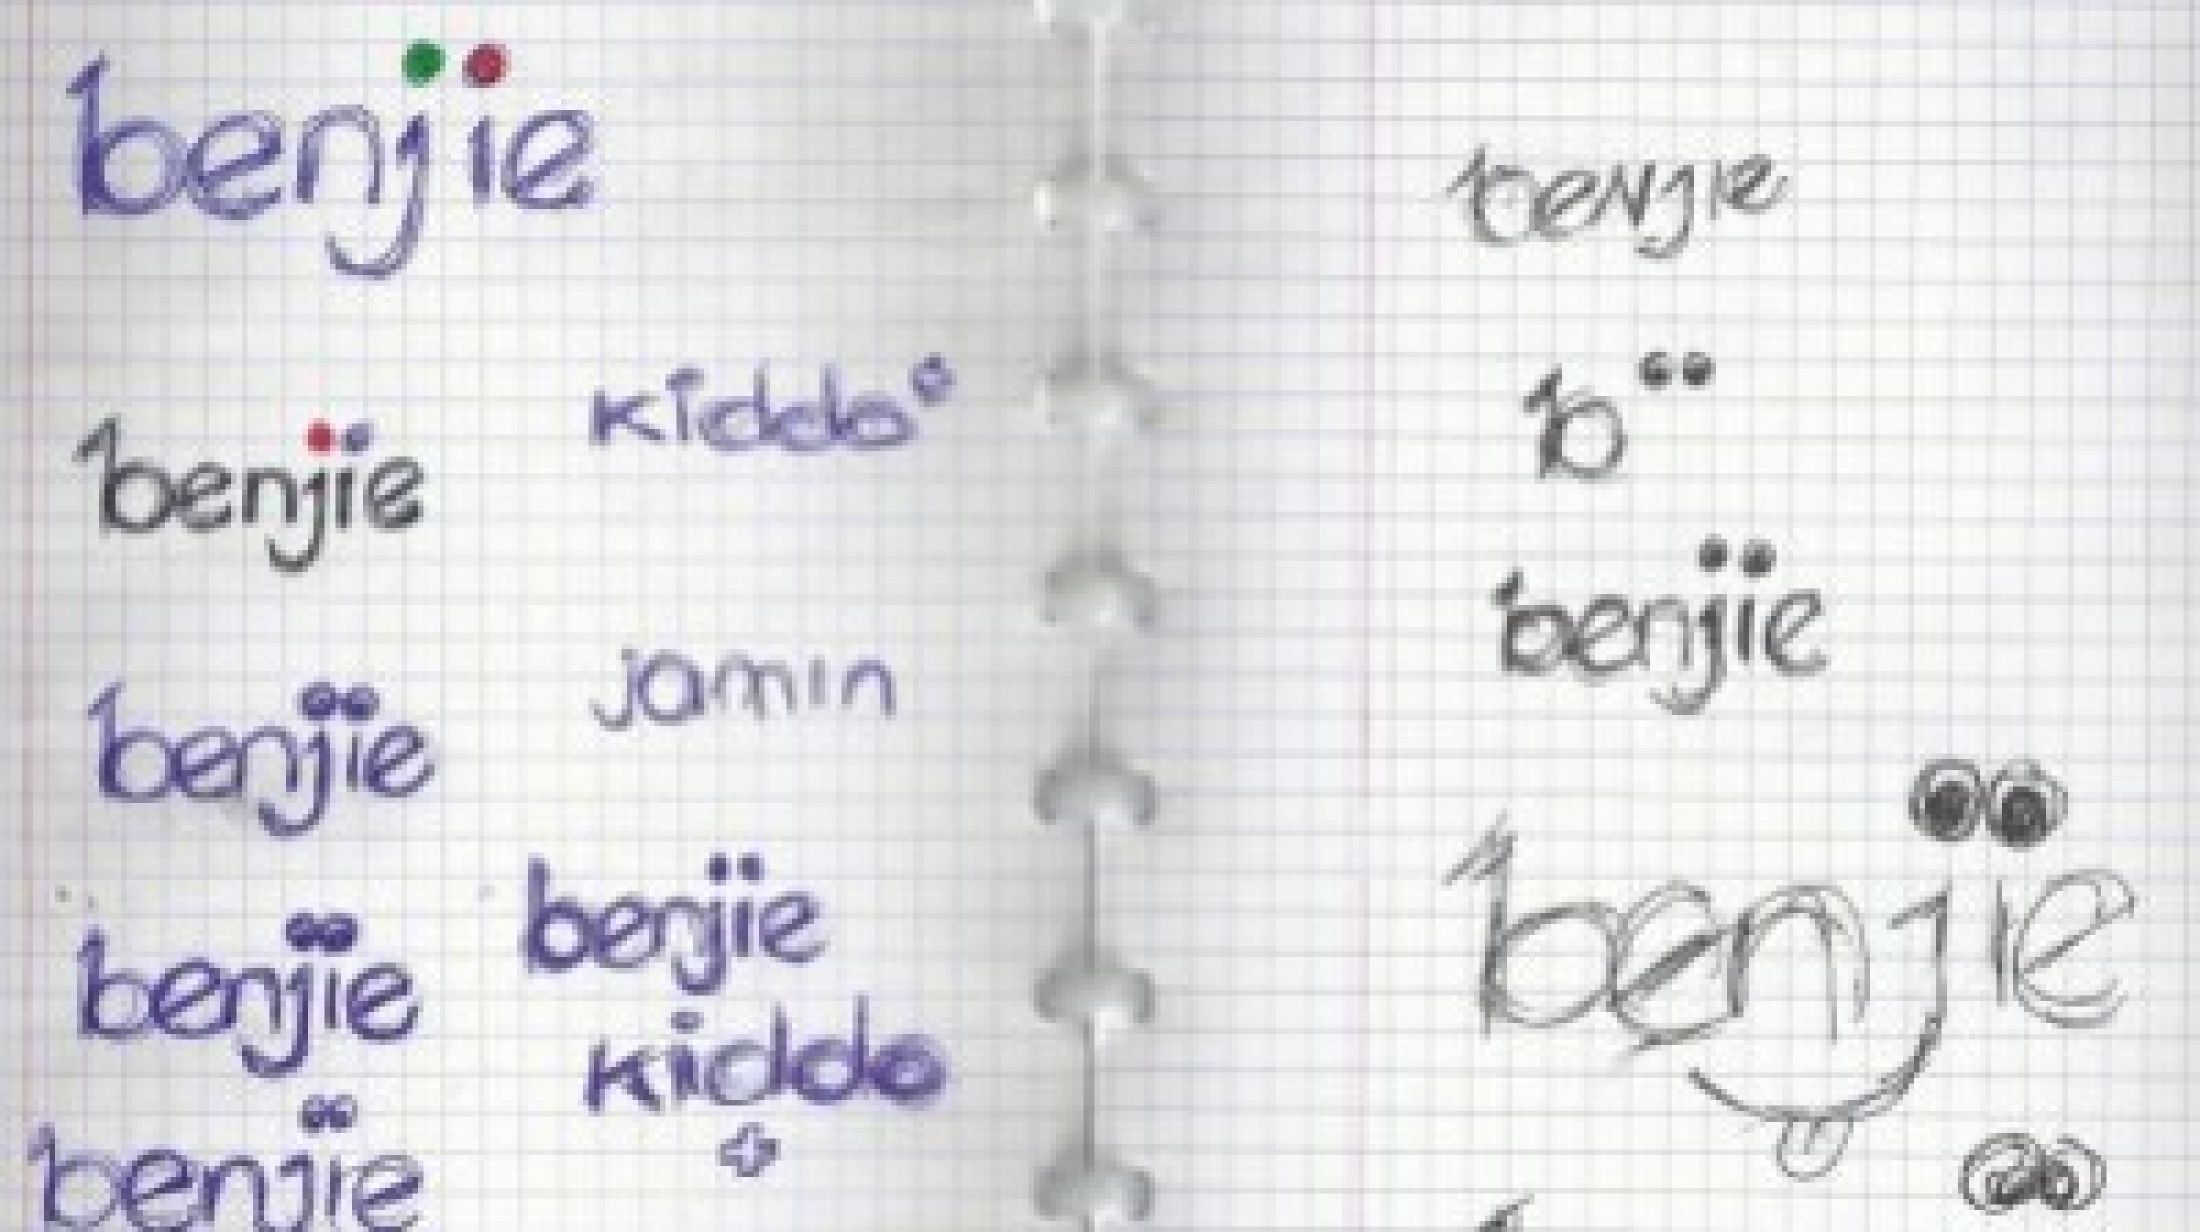 benjie
kiddo
benjie
jamin
benjie
benjie
kiddo
benjie
benjie
benjie
b
benjie
benjie